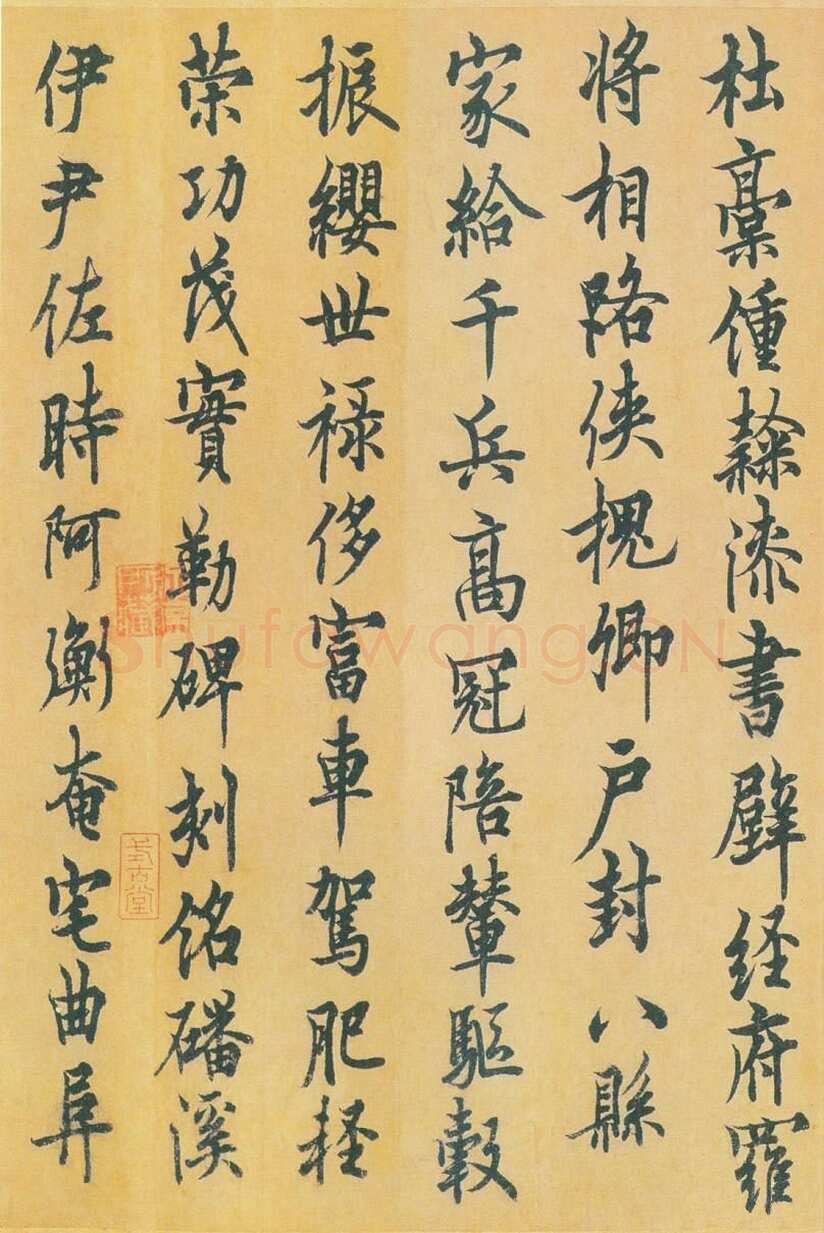 杜稾鍾隸漆書壁経府羅
将相路俠槐卿戶封八縣
家給千兵高冠陪輦驅轂
振纓世禄侈富車駕肥軽
荣功茂實勒碑刻銘磻溪
伊尹佐時阿衡奄宅曲阜
shufawang.CN